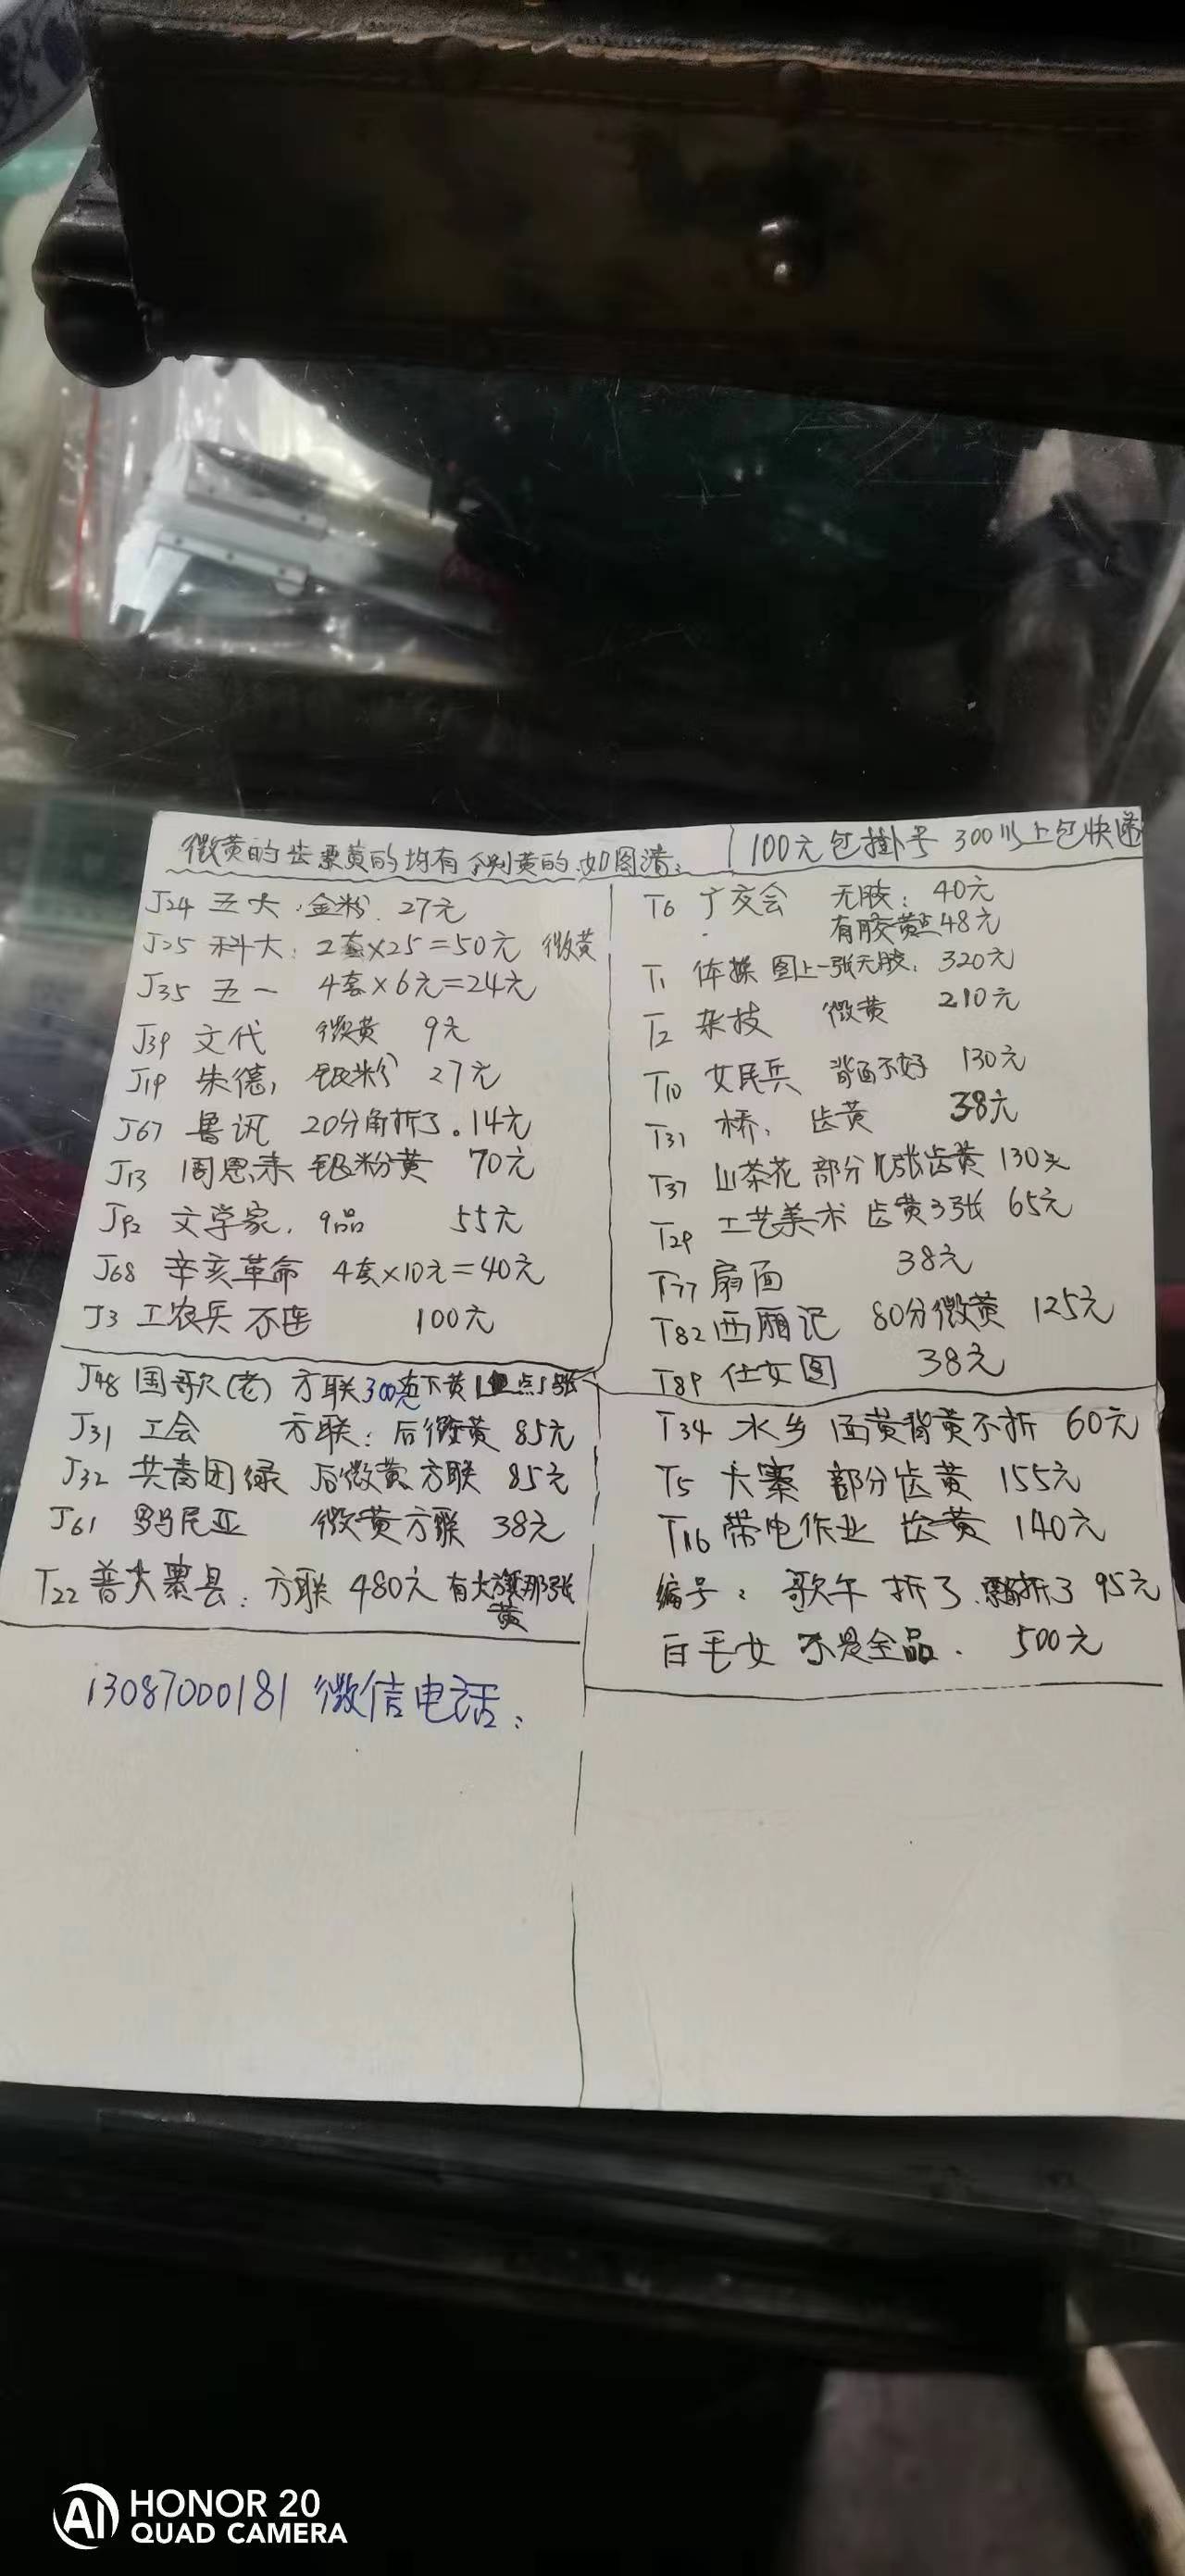 微黄的齿票黄的均有个别黄的.如图清:
100元包掛号 300以上包快递
J24 五大.金粉. 27元
J25 科大: 2套×25=50元 微黄
J35 五一 4套×6元=24元
J39 文代 微黄 9元
J19 朱德, 银粉 27元
J67 鲁讯 20分角折了。14元
J13 周恩来 银粉黄 70元
J92 文学家. 9品 55元
J68 辛亥革命 4套×10元=40元
J3 工农兵 不连 100元
J48 国歌(老) 方联300元 下黄 点 张
J31 工会 方联: 后微黄 85元
J32 共青团绿 后微黄方联 85元
J61 罗马尼亚 微黄方联 38元
T22 普大寨县: 方联 480元 有大旗那张
黄
13087000181 微信电话:
T6 广交会 无胶: 40元
有胶黄点48元
T1 体操 图上一张无胶. 320元
T2 杂技 微黄 210元
T10 女民兵 背面不好 130元
T31 桥, 齿黄 38元
T37 山茶花 部分几张齿黄 130元
T29 工艺美术 齿黄3张 65元
T77 扇面 38元
T82 西厢记 80分微黄 125元
T89 仕女图 38元
T34 水乡 面黄背黄不折 60元
T5 大寨 部分齿黄 155元
T16 带电作业 齿黄 140元
编号: 歌午 折了. 折了 95元
白毛女 不是全品. 500元
AI HONOR 20
QUAD CAMERA